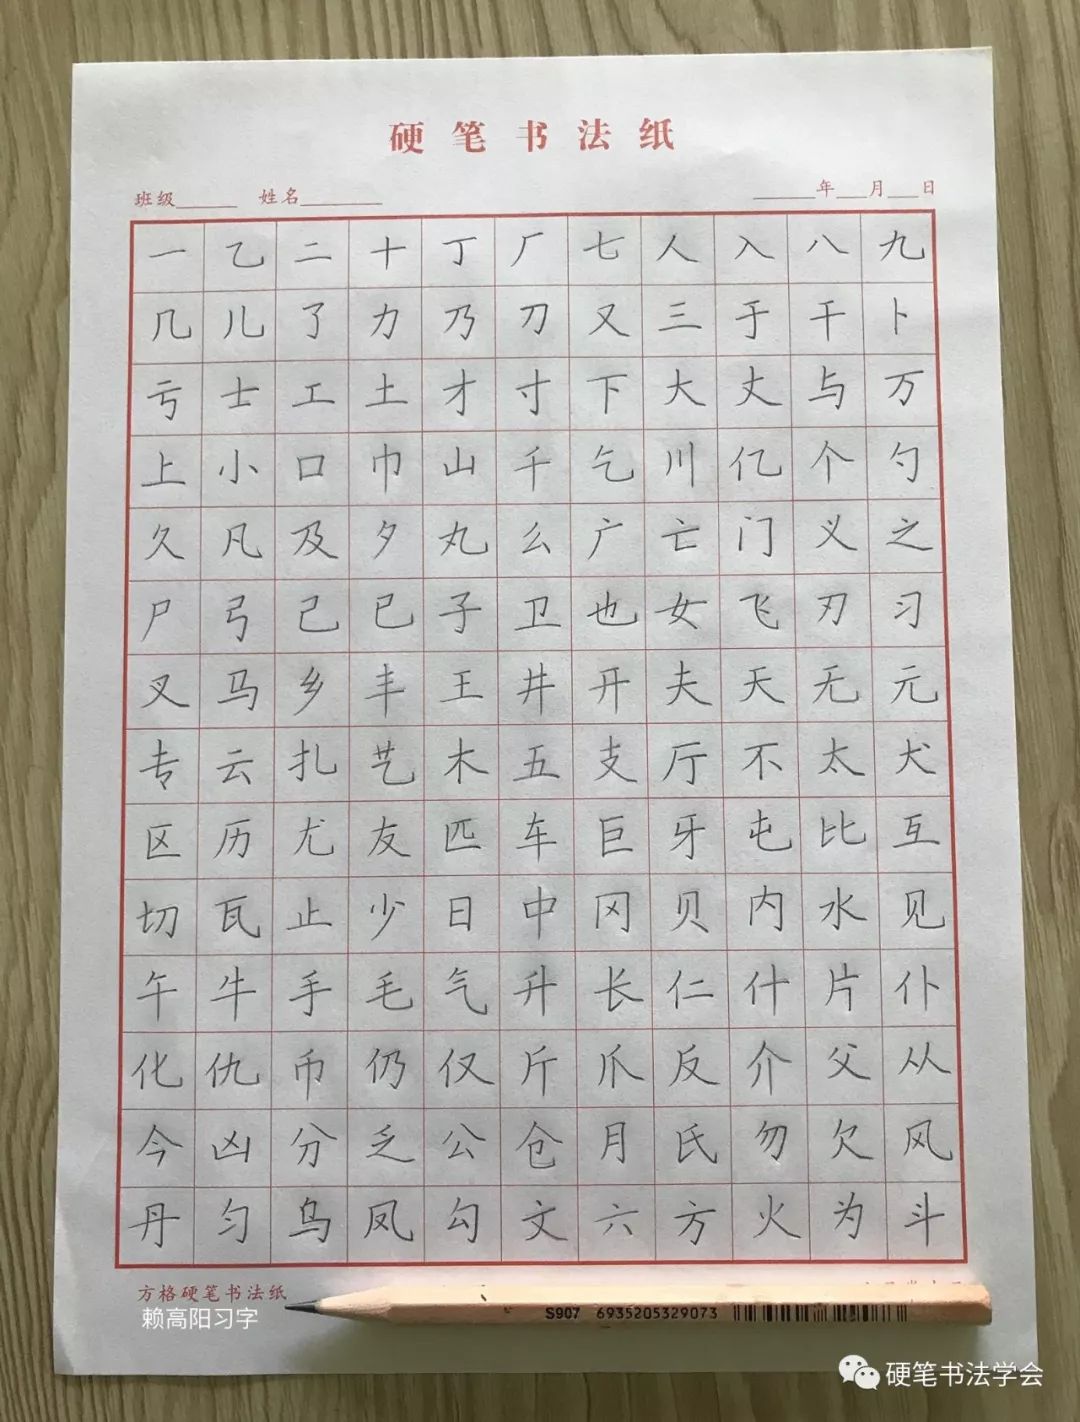 硬笔书法纸
班级______ 姓名________ ______年___月___日
一乙二十丁厂七人入八九
几儿了力乃刀又三于干卜
亏士工土才寸下大丈与万
上小口巾山千乞川亿个勺
久凡及夕丸么广亡门义之
尸弓己已子卫也女飞刃习
叉马乡丰王井开夫天无元
专云扎艺木五支厅不太犬
区历尤友匹车巨牙屯比互
切瓦止少日中冈贝内水见
午牛手毛气升长仁什片仆
化仇币仍仅斤爪反介父从
今凶分乏公仓月氏勿欠风
丹匀乌凤勾文六方火为斗
方格硬笔书法纸
赖高阳习字
S907 6935205329073
硬笔书法学会